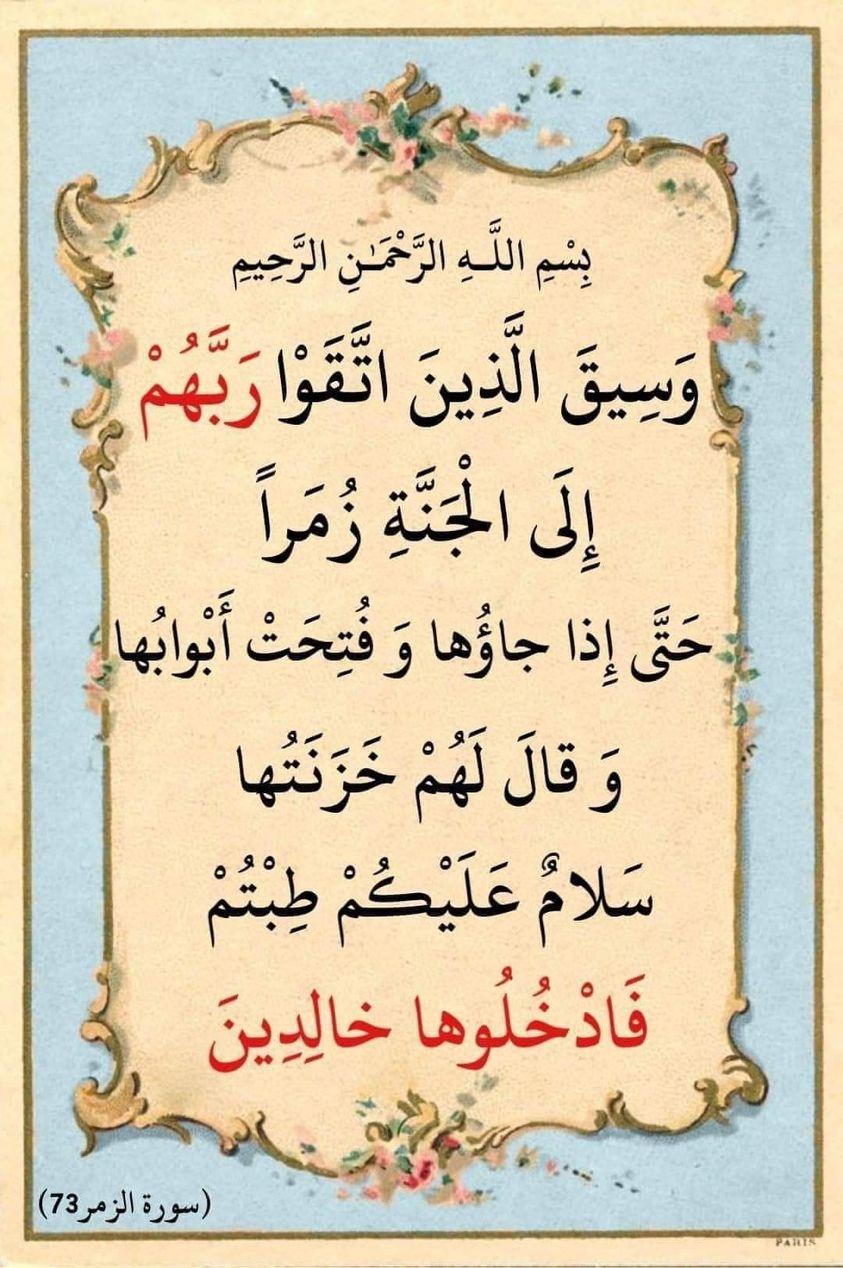 بِسْمِ اللَّـهِ الرَّحْمَـٰنِ الرَّحِيمِ
وَسِيقَ الَّذِينَ اتَّقَوْا رَبَّهُمْ
إِلَى الْجَنَّةِ زُمَراً
حَتَّى إِذا جاؤُها وَ فُتِحَتْ أَبْوابُها
وَ قالَ لَهُمْ خَزَنَتُها
سَلامٌ عَلَيْكُمْ طِبْتُمْ
فَادْخُلُوها خالِدِينَ
(سورة الزمر73)
PARIS